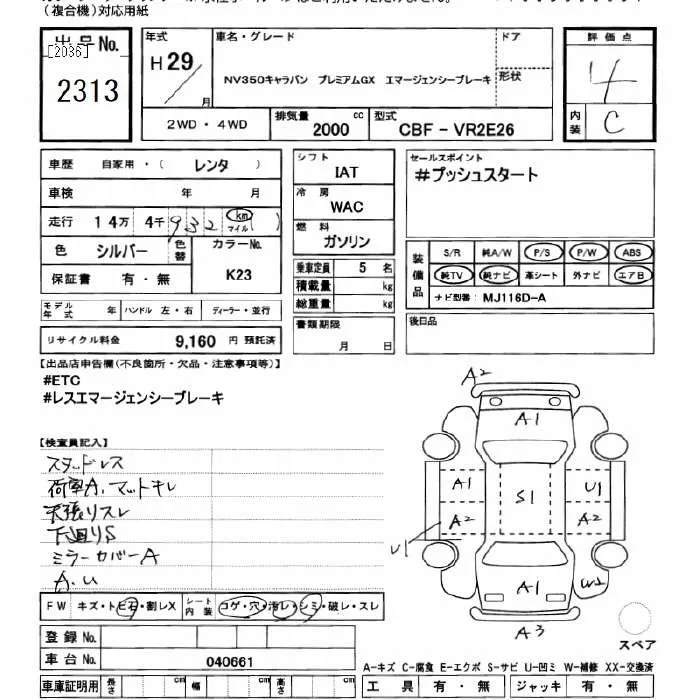 (複合機)対応用紙
出品No.
[2036]
2313
年式
H29/
月
車名・グレード
ドア
NV350キャラバン プレミアムGX エマージェンシーブレーキ
形状
評価点
4
内装
C
2WD・4WD
排気量
2000
cc
型式
CBF-VR2E26
車歴 自家用・(レンタ)
車検 年 月
走行 14万 4千 932 km マイル ( )
色 シルバー
色替
カラーNo.
K23
保証書 有・無
シフト
IAT
冷房
WAC
燃料
ガソリン
乗車定員 5 名
積載量 kg
総重量 kg
書類期限
月 日
セールスポイント
#プッシュスタート
装備品
S/R 純A/W P/S P/W ABS
純TV 純ナビ 革シート 外ナビ エアB
ナビ型番: MJ116D-A
後日品
モデル年式 年 ハンドル 左・右 ディーラー・並行
リサイクル料金 9,160 円 預託済
【出品店申告欄(不良箇所・欠品・注意事項等)】
#ETC
#レスエマージェンシーブレーキ
【検査員記入】
スタッドレス
荷室A.マットキレ
天張リスレ
下廻りS
ミラーカバーA
A.U
FW キズ・トビ石・割レX
シート内装 コゲ・穴・汚レ・シミ・破レ・スレ
登録No.
車台No. 040661
車庫証明用 長さ cm 幅 cm 高さ cm
A2
A1
A1
S1
U1
A2
A2
U1
A1
W2
A3
スペア
A-キズ C-腐食 E-エクボ S-サビ U-凹ミ W-補修 XX-交換済
工具 有・無 ジャッキ 有・無